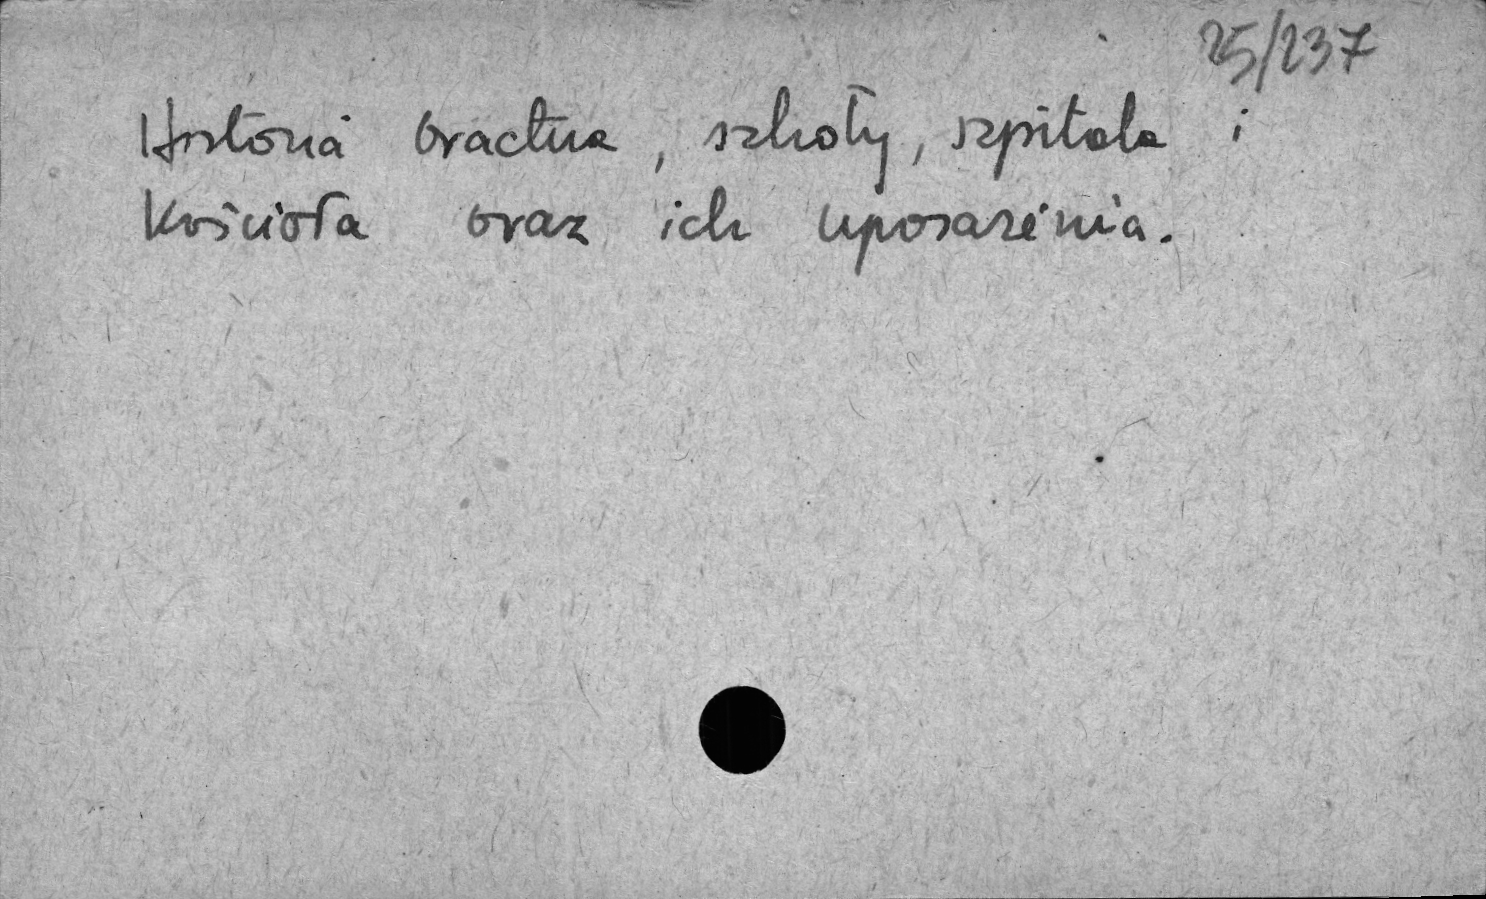 25/237
Historia bractwa, szkoły, szpitala i
Kościoła oraz ich uposażenia.